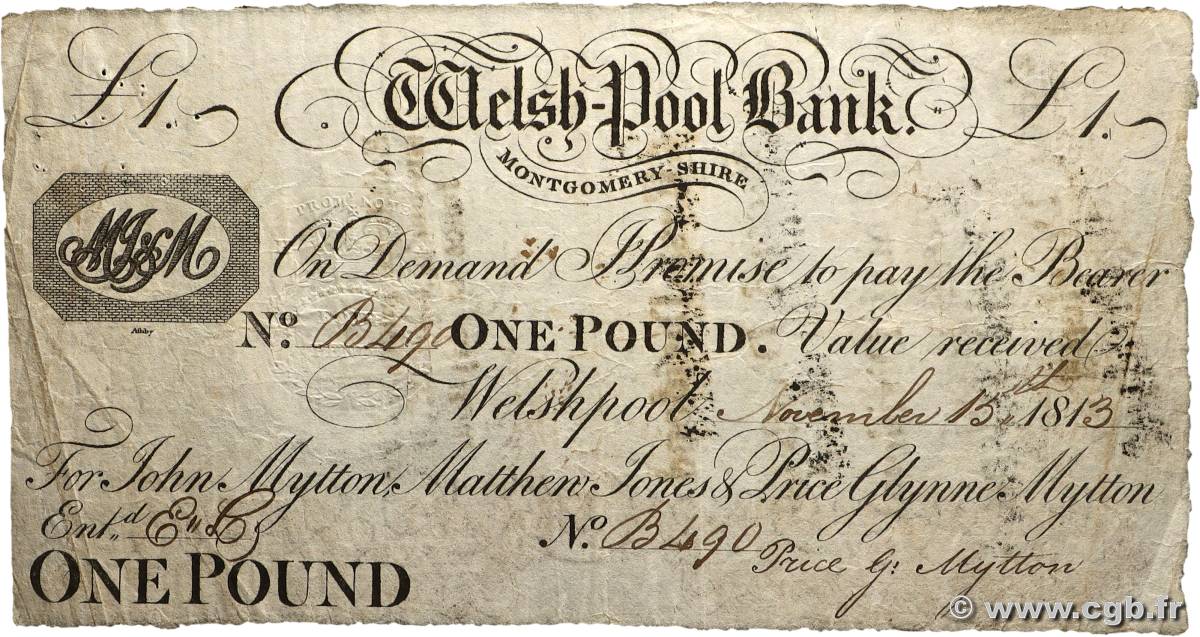 £1. Welsh-Pool Bank. £1.
MONTGOMERY-SHIRE
MJ&M
On Demand I Promise to pay the Bearer
Ashby
No. B490 ONE POUND. Value received
Welshpool November 15th 1813
For John Mytton, Matthew Jones & Price Glynne Mytton
Entd.
No. B490
Price G: Mytton
ONE POUND
© www.cgb.fr